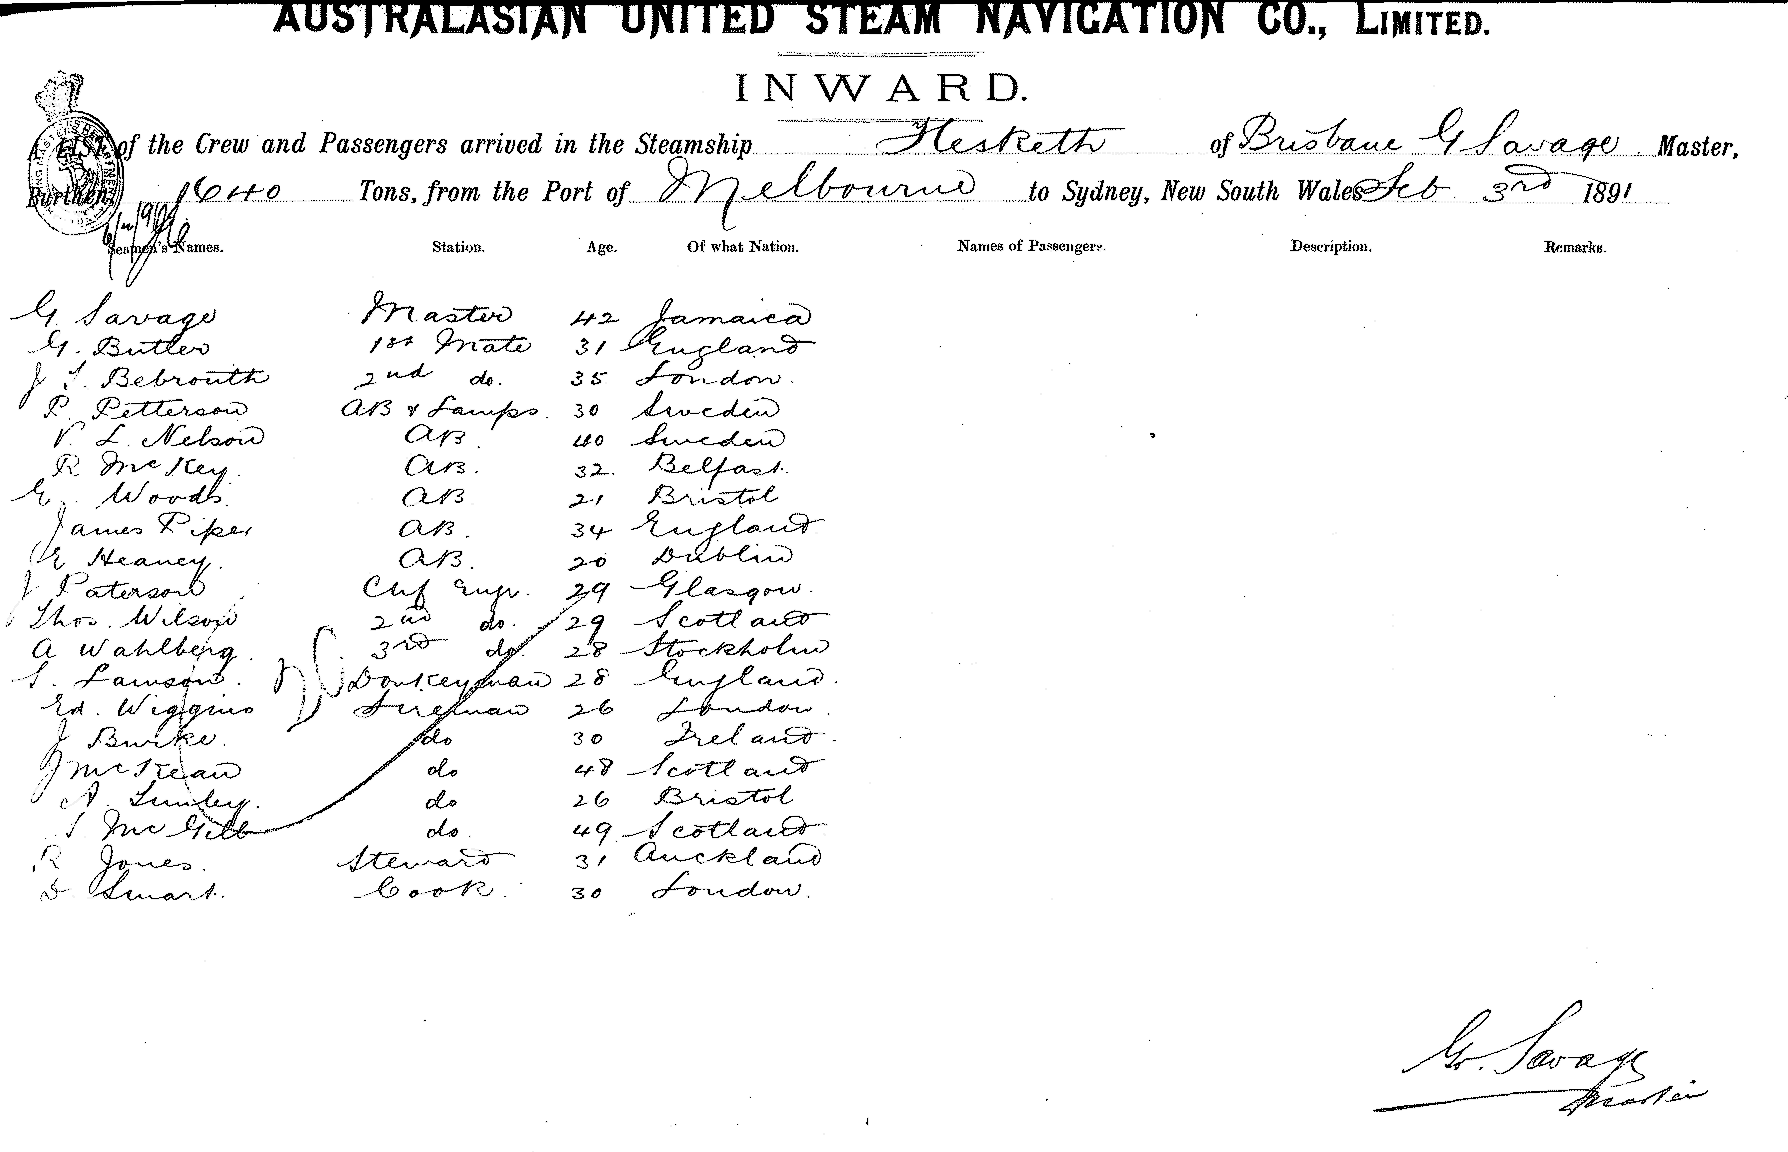 AUSTRALASIAN UNITED STEAM NAVIGATION CO., LIMITED.
INWARD.
A LIST of the Crew and Passengers arrived in the Steamship Hesketh of Brisbane G Savage Master,
Burthen 640 Tons, from the Port of Melbourne to Sydney, New South Wales Feb 3rd 1891
Seamen's Names. Station. Age. Of what Nation. Names of Passengers. Description. Remarks.
G Savage Master 42 Jamaica
G. Butler 1st Mate 31 England
J T. Bebrouth 2nd do. 35 London.
P. Petterson AB & Lamps. 30 Sweden
L. Nelson AB 40 Sweden
R McKey. AB. 32. Belfast.
E. Woods. AB 21 Bristol
James Piper AB. 34 England
E Heaney. AB. 20 Dublin
J Paterson Chf Engr. 29 Glasgow.
Thos. Wilson 2nd do. 29 Scotland
A Wahlberg. 3rd do 28 Stockholm
S. Lamson. Donkeyman 28 England.
Ed. Wiggins Fireman 26 London.
J Burke. do 30 Ireland.
J McKean do 48 Scotland
A. Lumley. do 26 Bristol
McGill do. 49 Scotland
R Jones. Steward 31 Auckland
D Smart. Cook. 30 London.
G. Savage
Master